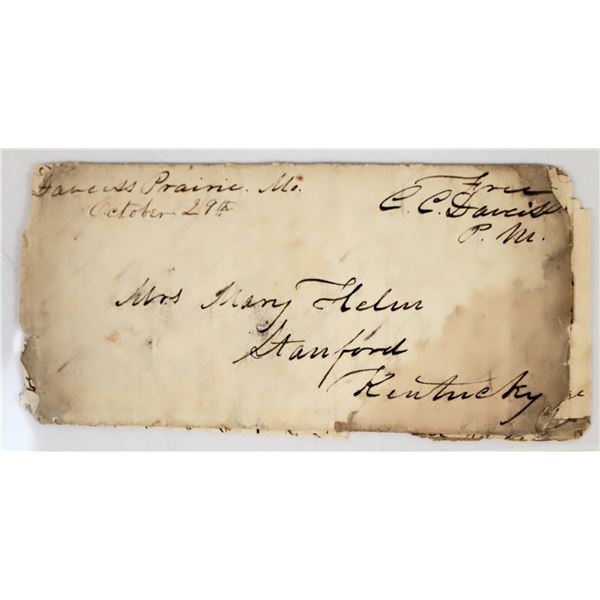 Daveiss Prairie. Mo.
October 29th
Free
C. C. Daveiss
P. M.
Mrs Mary Helm
Stanford
Kentucky